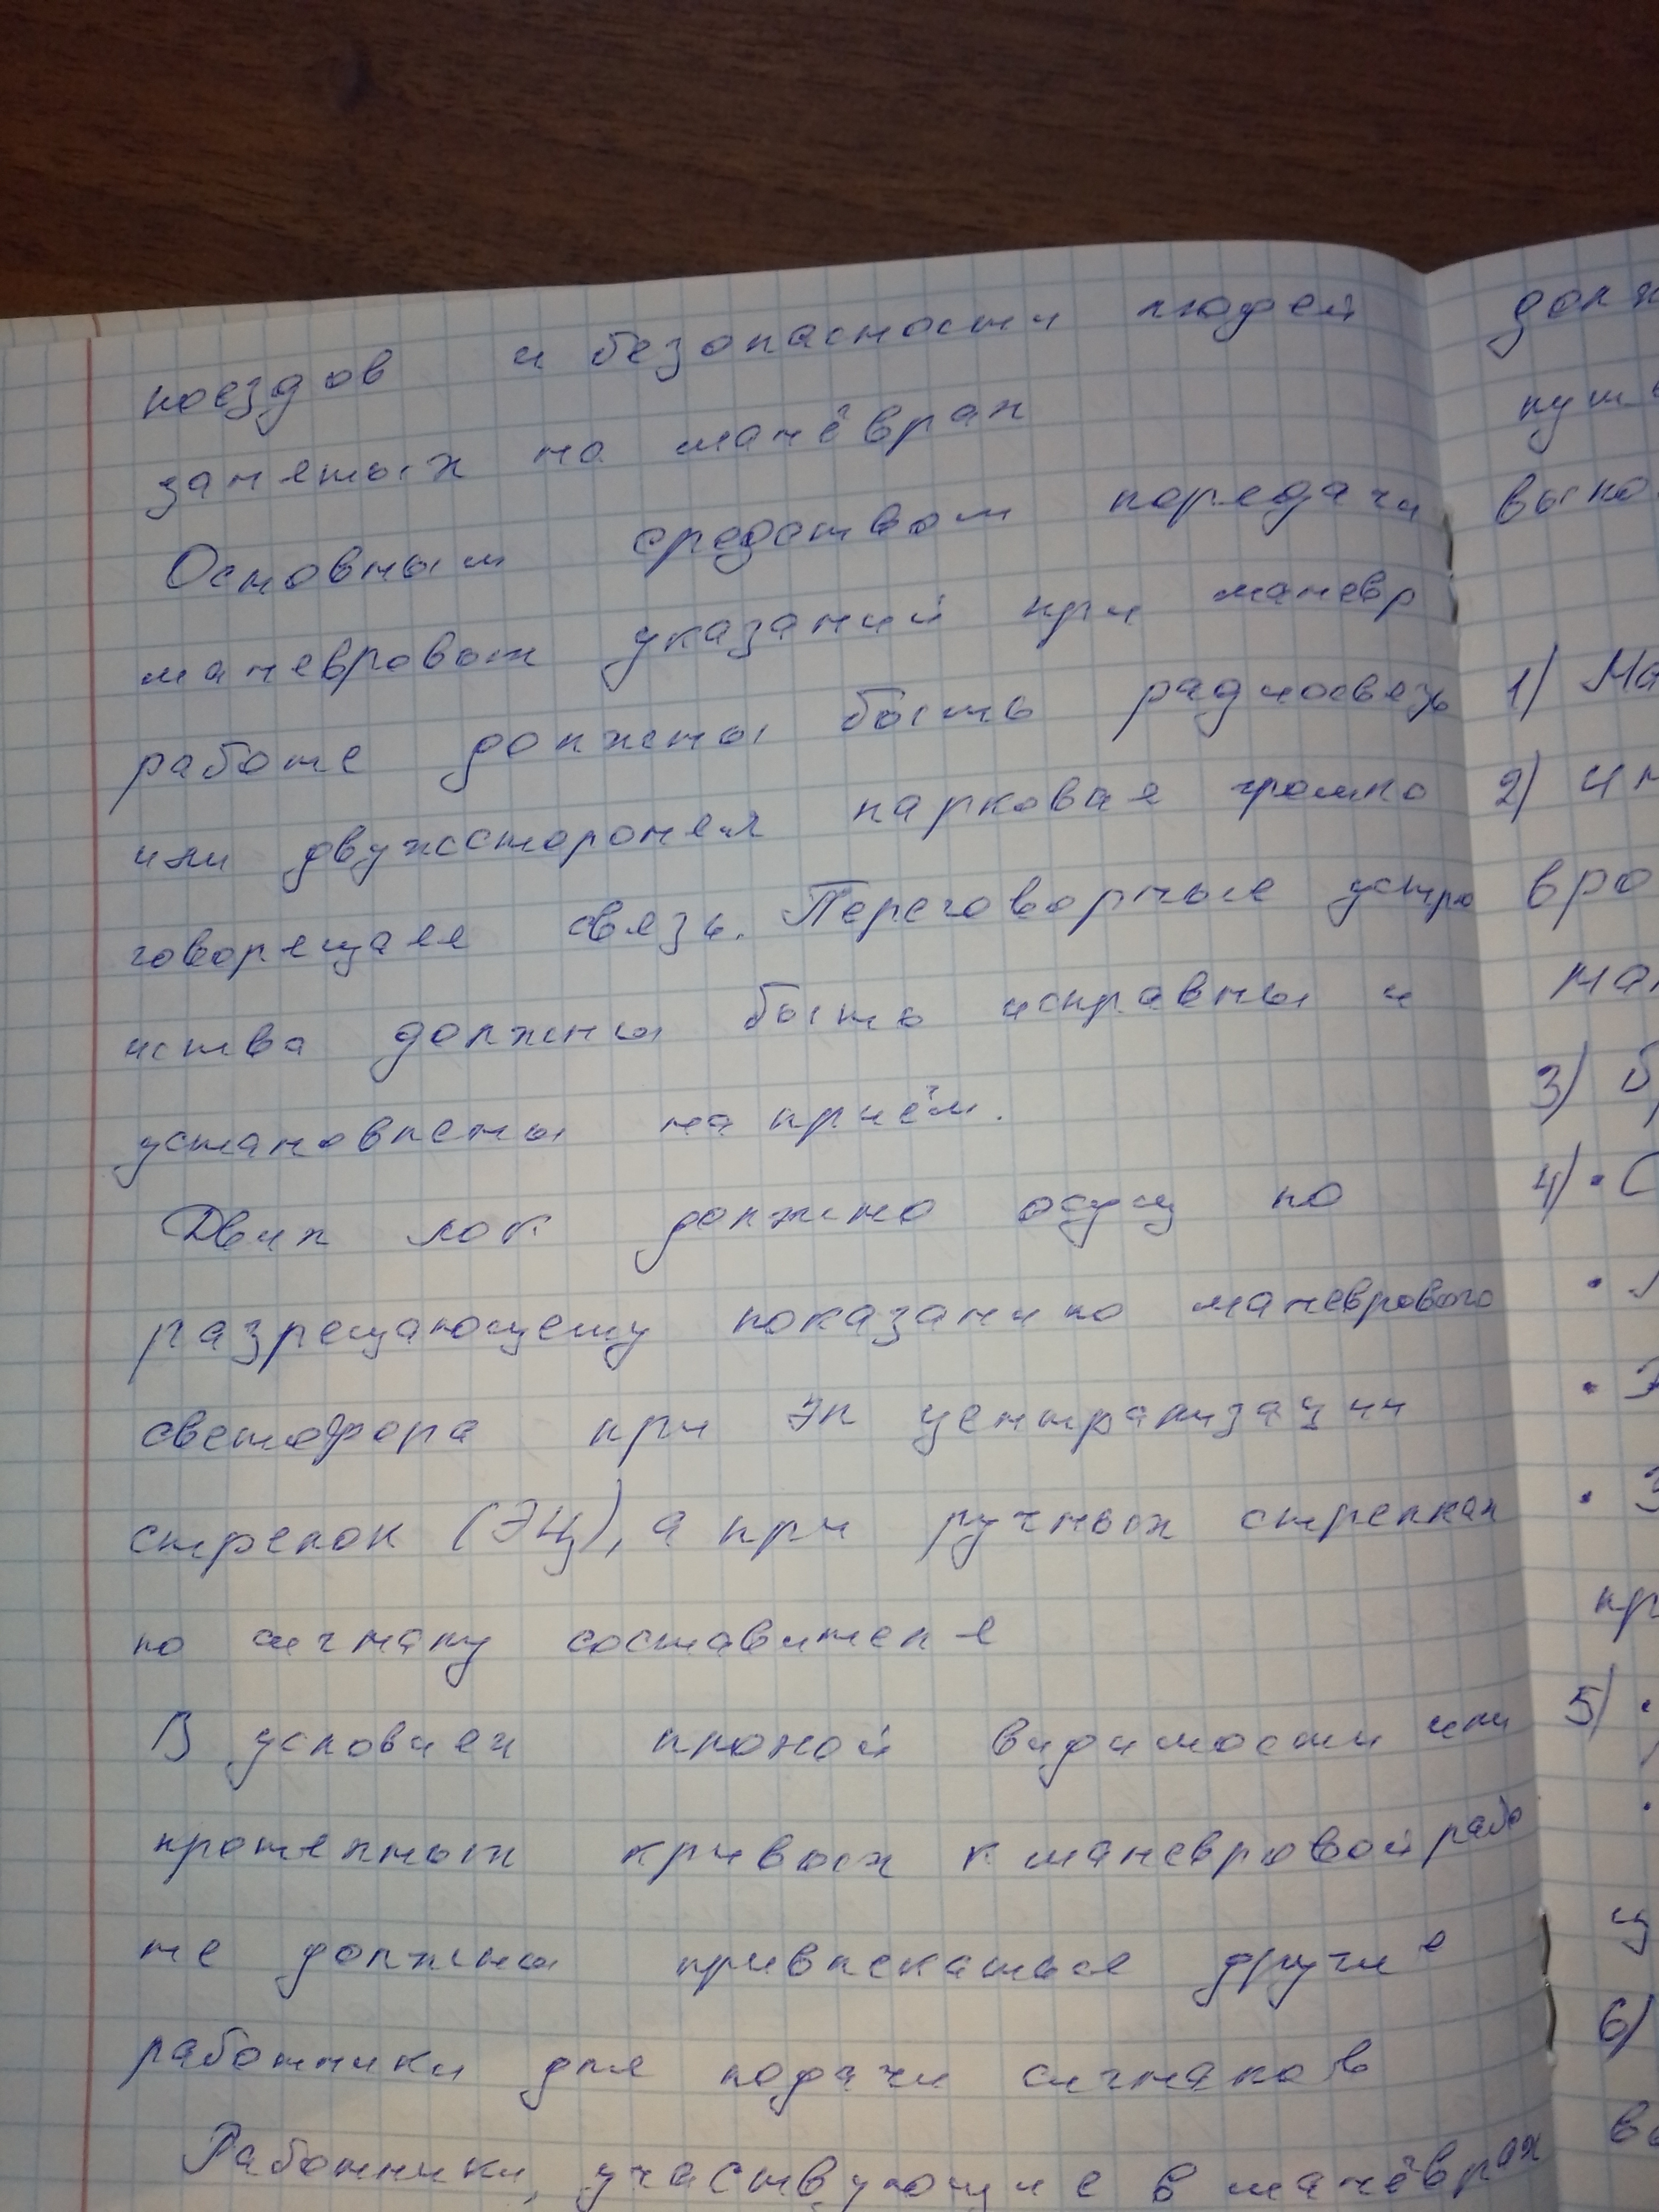 поездов и безопасности людей
занятых на манёврах
Основным средством передачи
маневровых указаний при маневр
работе должны быть радиосвязь
или двухсторонея парковая громко
говорящая связь. Переговорные устро
йства должны быть исправны и
установлены на приём.
Движ лок должно осущ по
разрещающему показанию маневрового
светофора при эл централизации
стрелок (ЭЦ), а при ручных стрелках
по сигналу составителя
В условиях плохой видимости или
кривых к маневровой рабо
те должны привлекаться другие
работники для подачи сигналов
Работники, участвующие в манёврах
долж
путе
1) Ма
2)
вро
ман
3) б
4) • С
•
• Э
• З
пр
5) •
•
щ
6)